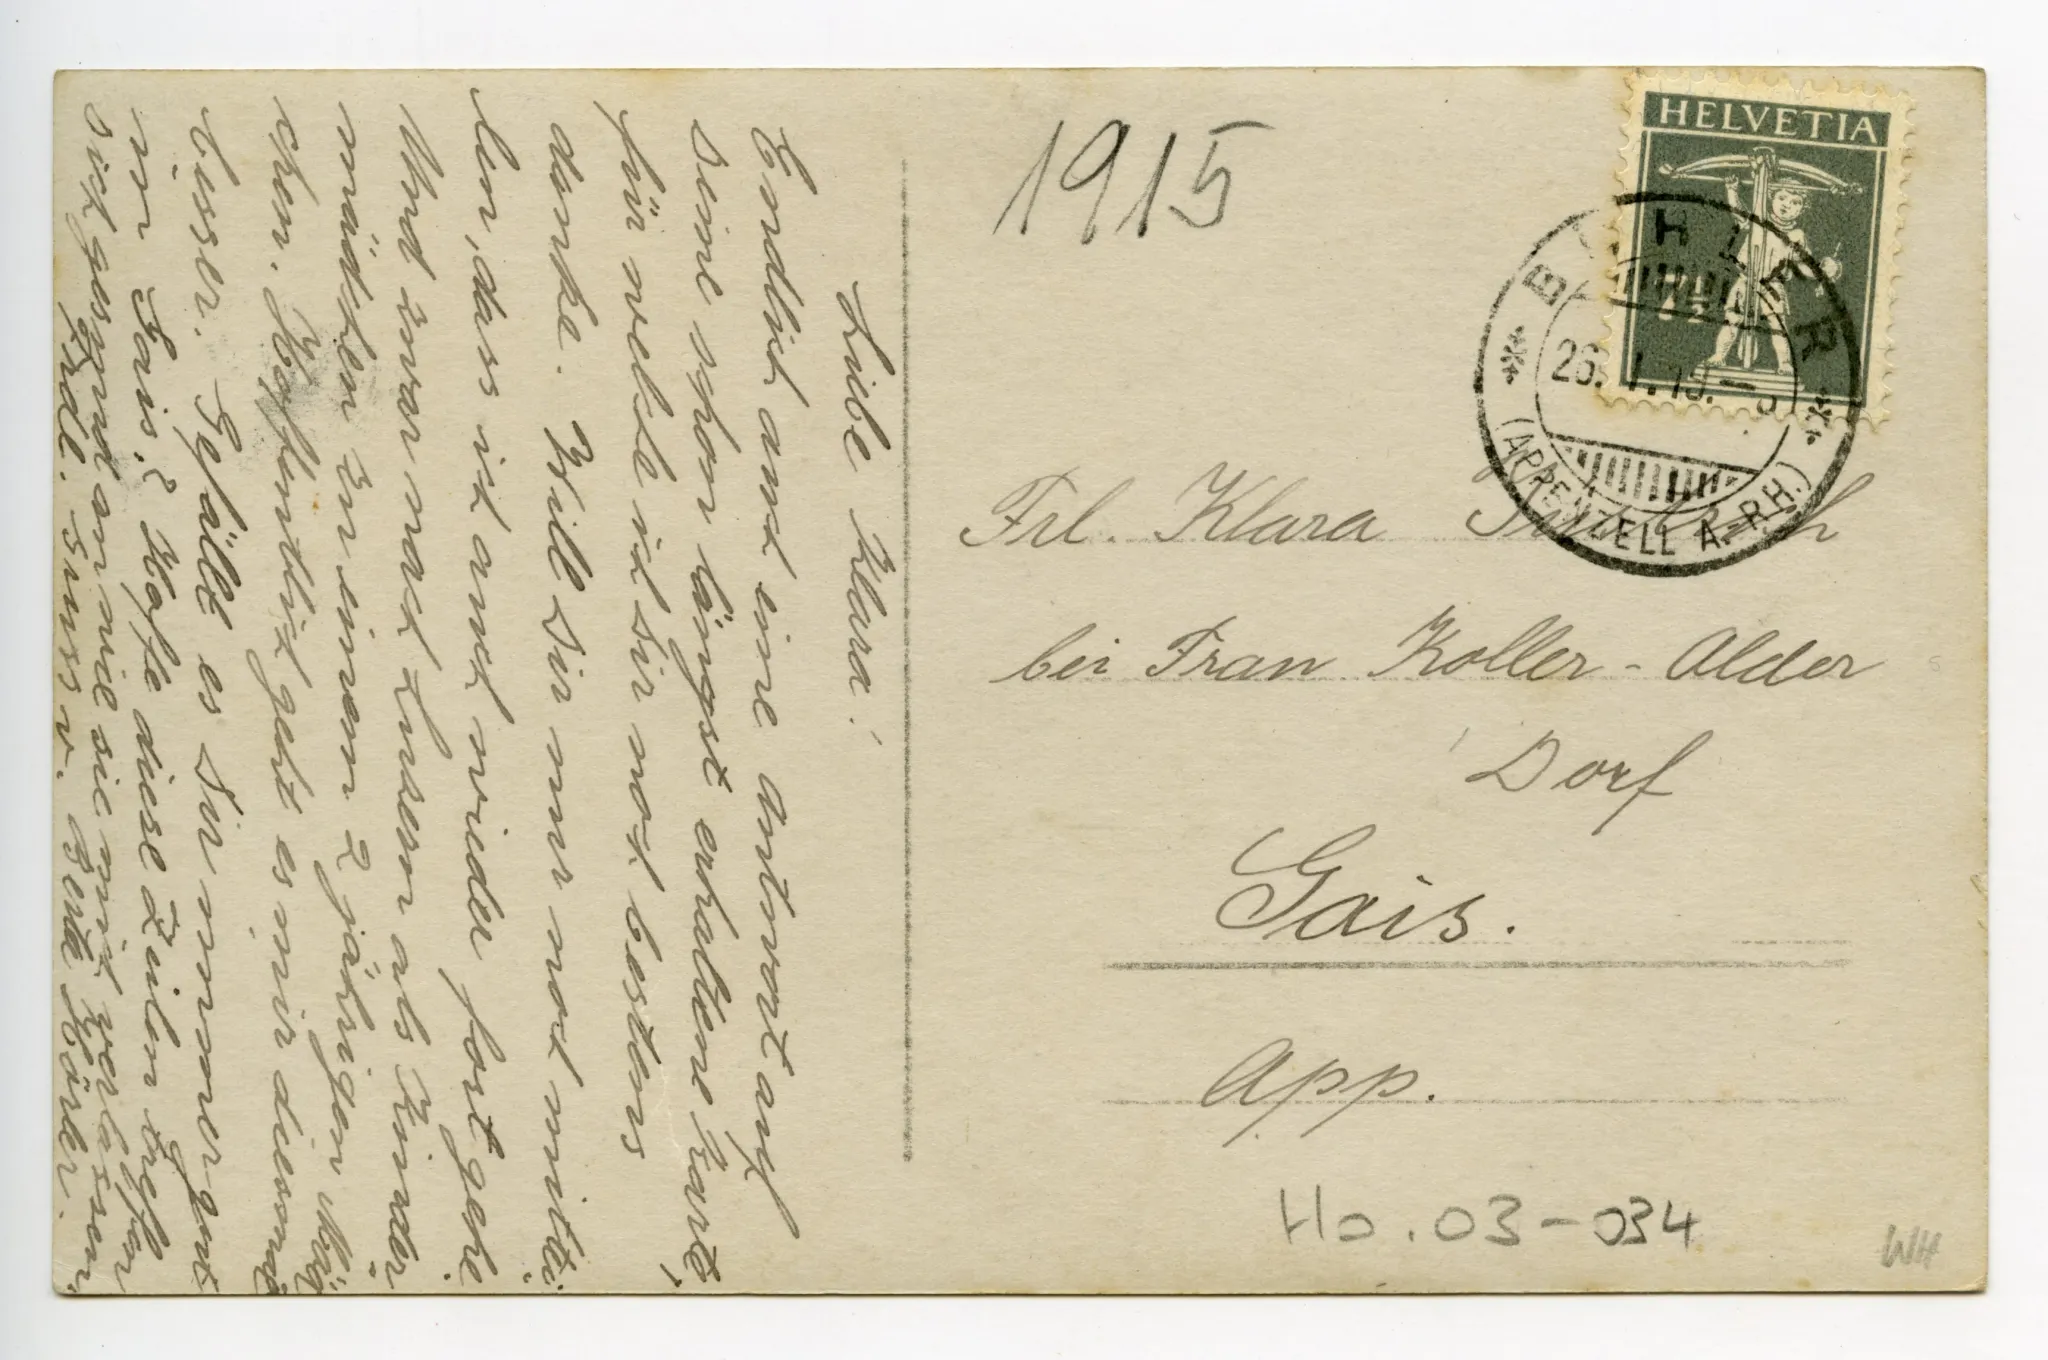 Liebe Klara!
Endlich auch eine Antwort auf
Deine schon längst erhaltene Karte,
für welche ich Dir noch bestens
danke. Will Dir nur noch mittei-
len, dass ich auch wieder fort gehe.
Und zwar nach Luzern als Kinder-
mädchen zu einem 2 jährigen Mäd-
chen. Hoffentlich geht es mir diesmal
besser. Gefällt es Dir immer gut
in Gais? Hoffe diese Zeilen treffen
Dich gesund an wie sie mich verlassen.
Frdl. Gruss v.
1915
HELVETIA
BÜHLER
26. I. 15. -
(APPENZELL A. RH.)
Frl. Klara
bei Frau Koller - Alder
Dorf
Gais.
App.
Ho. 03-034
WH